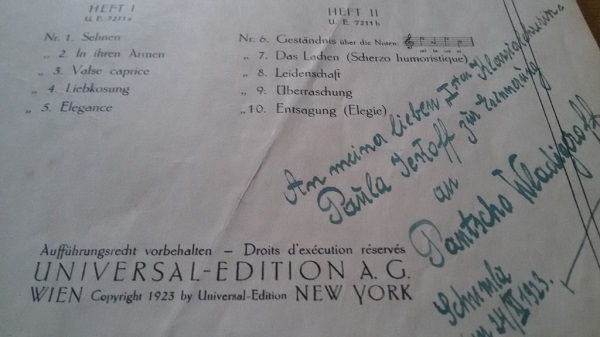 HEFT I
U. E. 7211a
Nr. 1. Sehnen
„ 2. In ihren Armen
„ 3. Valse caprice
„ 4. Liebkosung
„ 5. Elegance
HEFT II
U. E. 7211b
Nr. 6. Geständnis über die Noten:
„ 7. Das Lachen (Scherzo humoristique)
„ 8. Leidenschaft
„ 9. Überraschung
„ 10. Entsagung (Elegie)
An meine lieben
Paula Jekoff zur Erinnerung
an
Pantscho Wladigeroff
Schumla
24/IX 1923.
Aufführungsrecht vorbehalten – Droits d'exécution réservés
UNIVERSAL-EDITION A. G.
WIEN Copyright 1923 by Universal-Edition NEW YORK